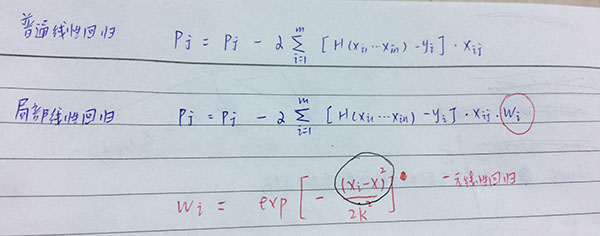 普通线性回归 Pj = Pj - α ∑_{i=1}^{m} [H(xi1 ... xin) - yi] · xij
局部线性回归 Pj = Pj - α ∑_{i=1}^{m} [H(xi1 ... xin) - yi] · xij · wi
wi = exp [ - (xi - x)^2 / 2k^2 ] 一元线性回归